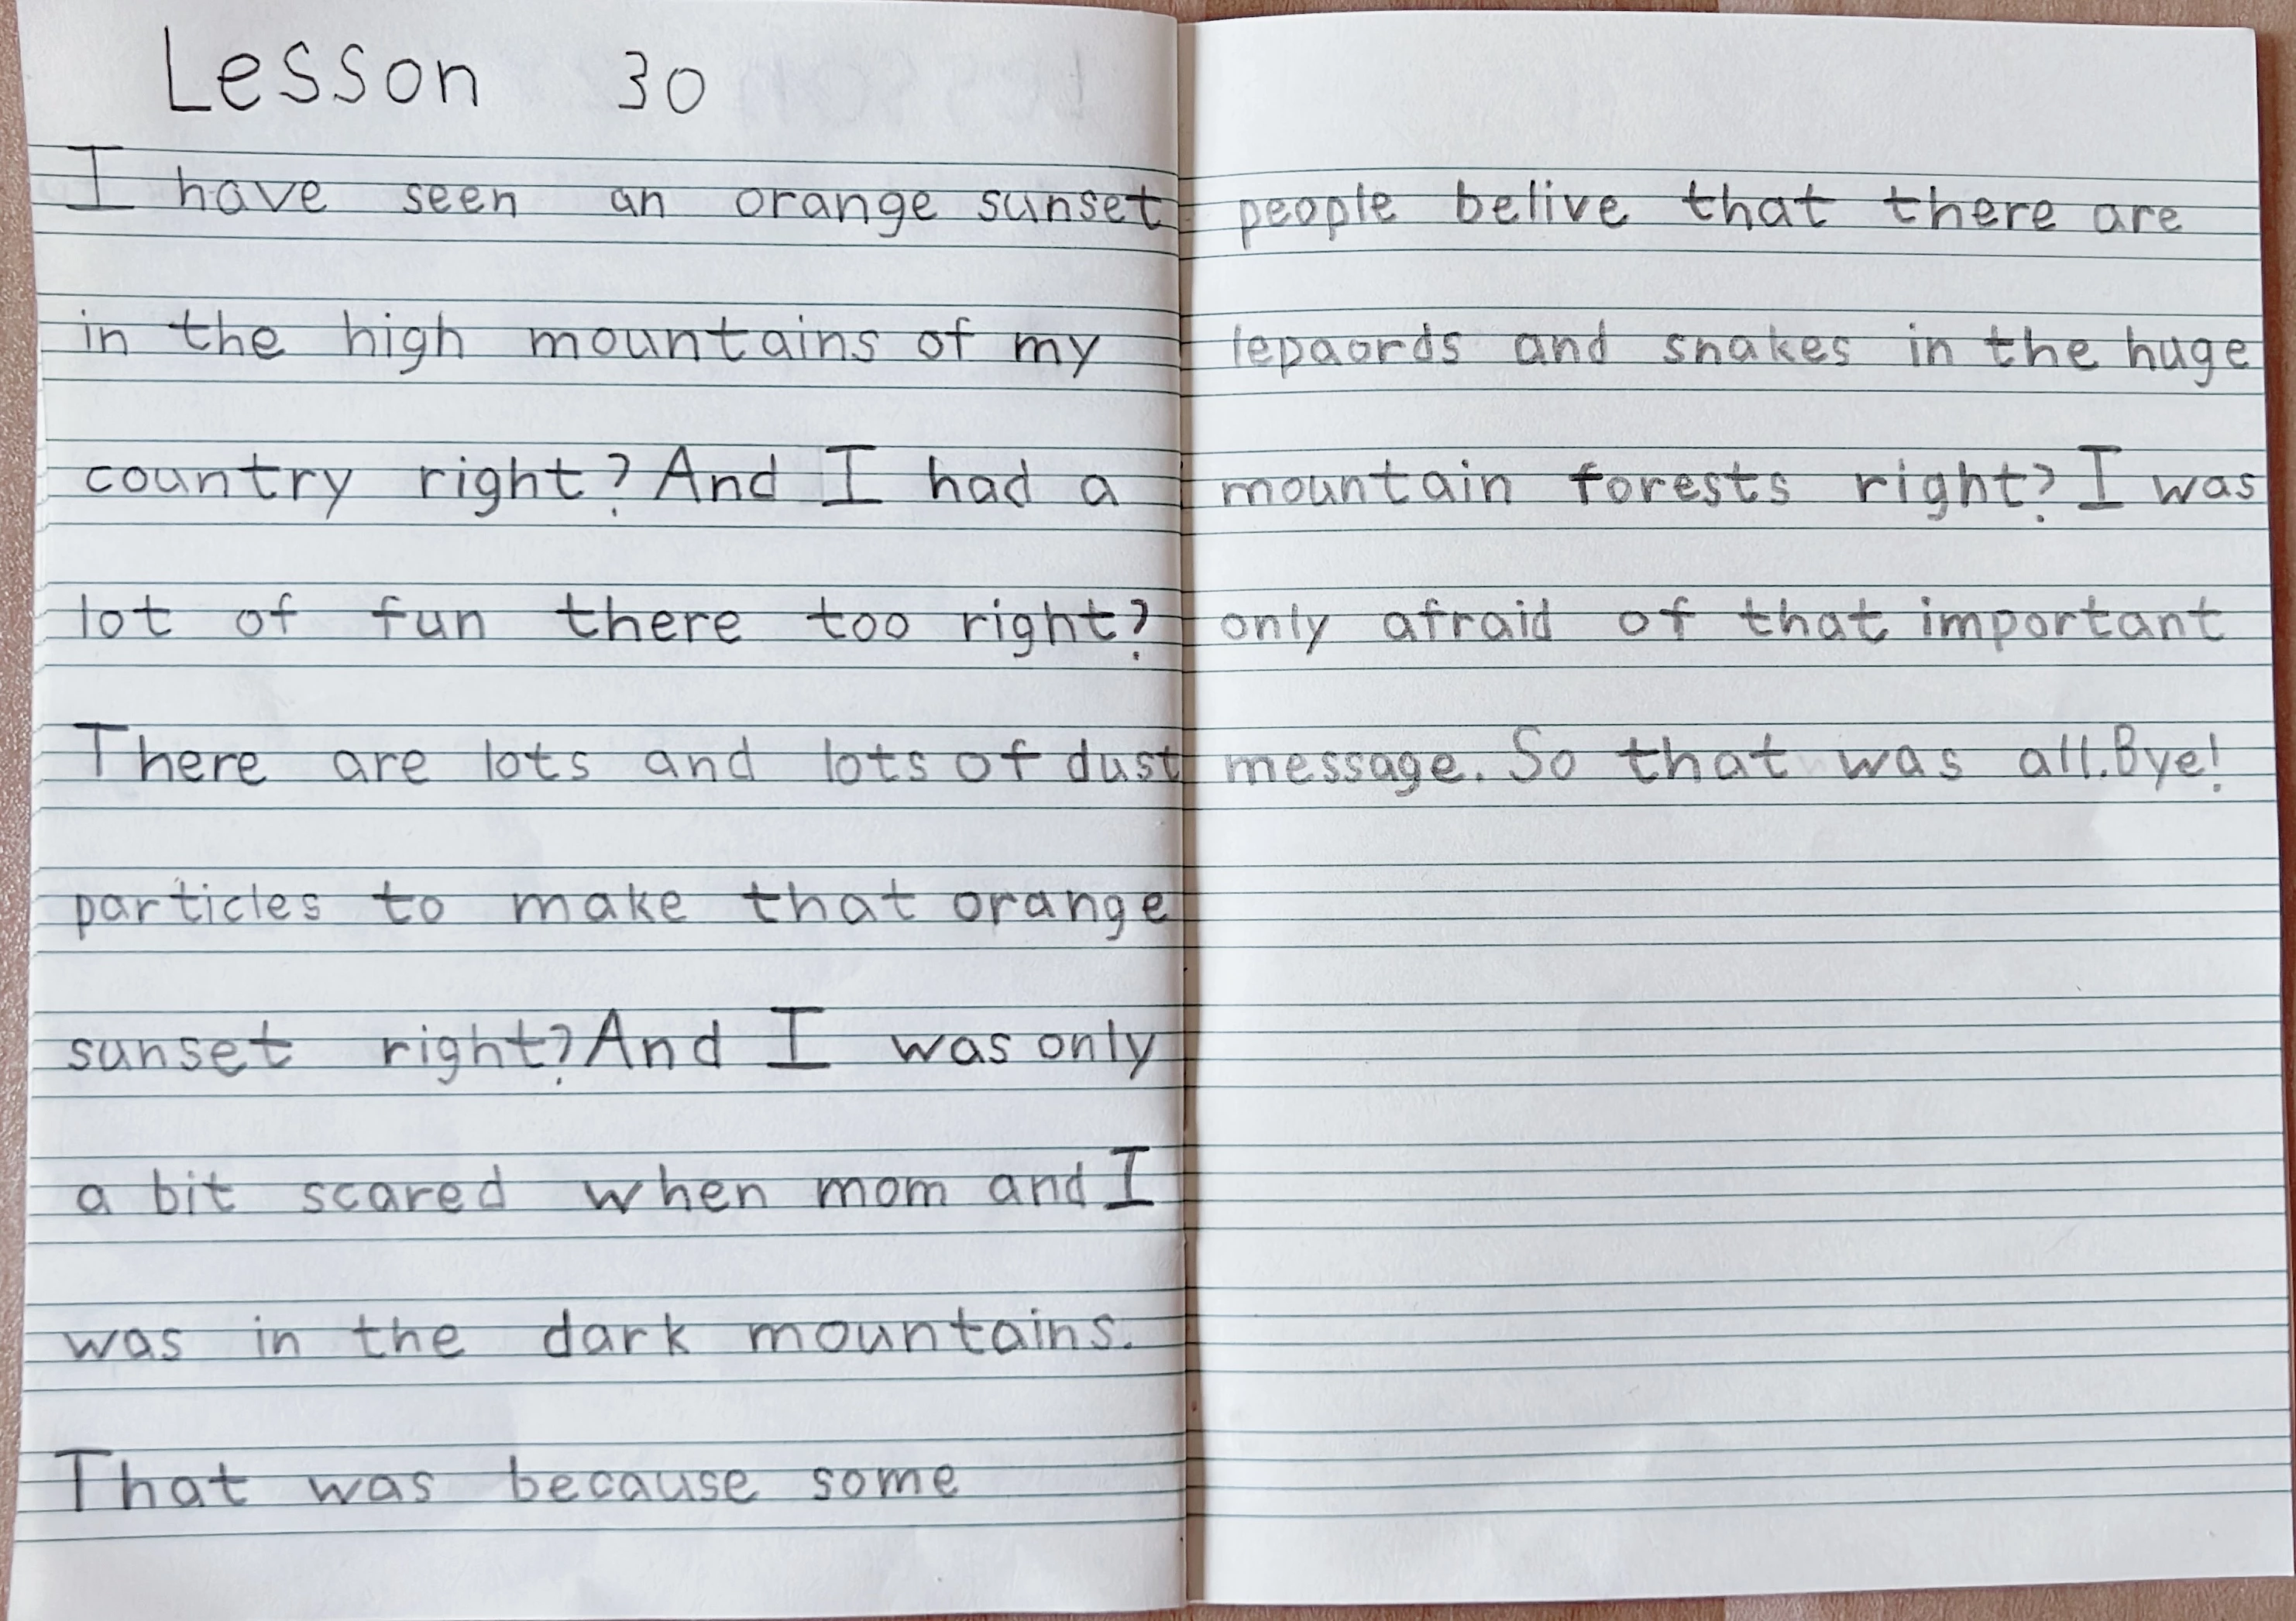 Lesson 30
I have seen an orange sunset
in the high mountains of my
country right? And I had a
lot of fun there too right?
There are lots and lots of dust
particles to make that orange
sunset right? And I was only
a bit scared when mom and I
was in the dark mountains.
That was because some
people belive that there are
lepaords and snakes in the huge
mountain forests right? I was
only afraid of that important
message. So that was all. Bye!